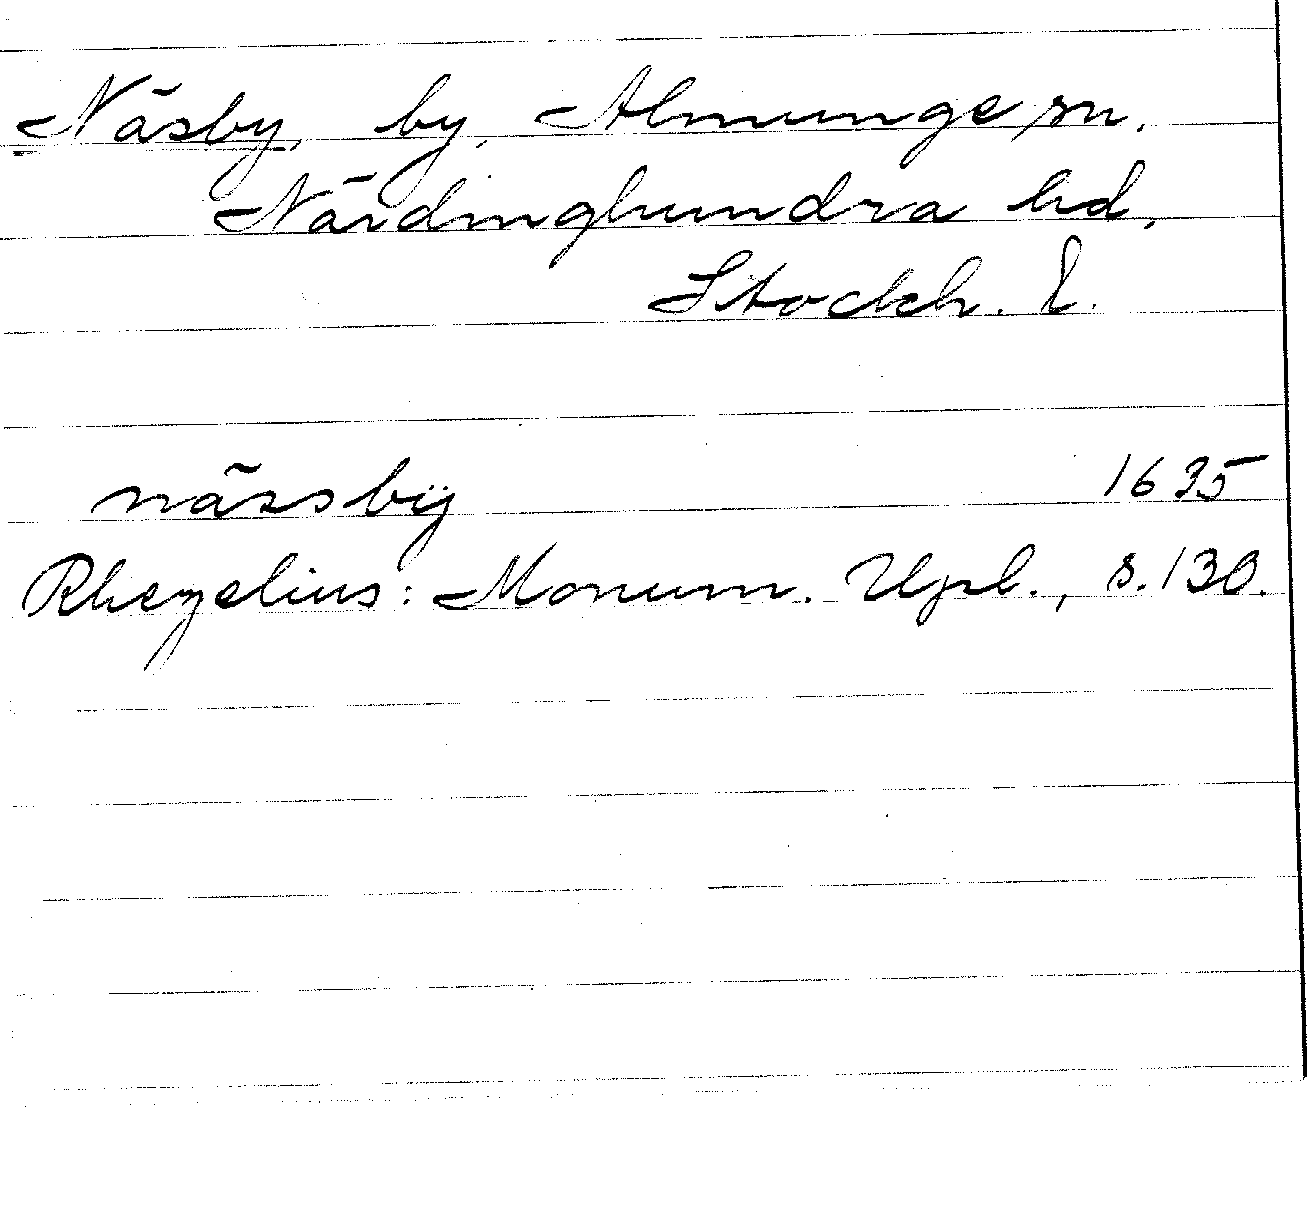 Näsby, by, Almunge sn.
Närdinghundra hd,
Stockh. l.
nässbÿ 1635
Rhezelius: Monum. Upl., s. 130.